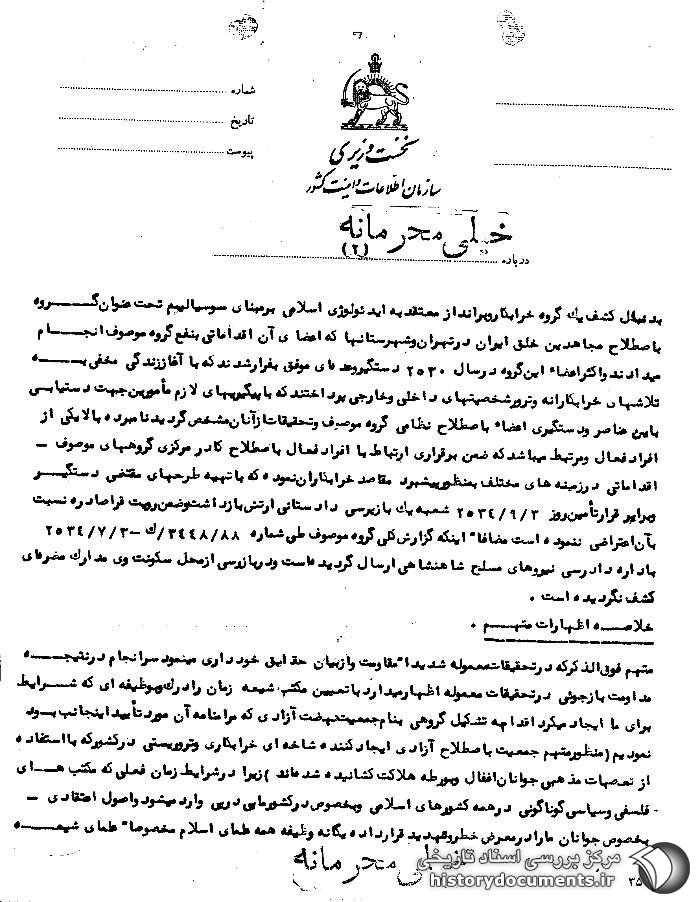 شماره
تاریخ
پیوست
نخست وزیری
سازمان اطلاعات و امنیت کشور
خیلی محرمانه
(۲)
درباره
بدنبال کشف یک گروه خرابکار و برانداز معتقد به ایدئولوژی اسلامی برمبنای سوسیالیسم تحت عنوان گروه
باصطلاح مجاهدین خلق ایران در تهران و شهرستانها که اعضای آن اقداماتی بنفع گروه موصوف انجام
میدادند و اکثر اعضاء این گروه در سال ۲۵۳۰ دستگیر و عده‌ای موفق بفرار شدند که با آغاز زندگی مخفی به
تلاشهای خرابکارانه و ترور شخصیتهای داخلی و خارجی پرداختند که با پیگیریهای لازم مأمورین جهت دستیابی
باین عناصر و دستگیری اعضاء باصطلاح نظامی گروه موصوف و تحقیقات از آنان مشخص گردید نامبرده بالا یکی از
افراد فعال و مرتبط میباشد که ضمن برقراری ارتباط با افراد فعال باصطلاح کادر مرکزی گروههای موصوف -
اقداماتی در زمینه های مختلف بمنظور پیشبرد مقاصد خرابکاران نموده که با تهیه طرحهای مقتضی دستگیر
و برابر قرار تأمین روز ۲۵۳۴/۹/۳ شعبه یک بازپرسی دادستانی ارتش بازداشت و ضمن رویت قرار صادره نسبت
بآن اعتراضی ننموده است مضافا" اینکه گزارش کلی گروه موصوف طی شماره ۳۴۴۸/۸۸/ک - ۲۵۳۴/۷/۳
باداره دادرسی نیروهای مسلح شاهنشاهی ارسال گردیده است و در بازرسی از محل سکونت وی مدارک مضره‌ای
کشف نگردیده است .
خلاصه اظهارات متهم .
متهم فوق الذکر که در تحقیقات معموله شدیدا" مقاومت و از بیان حقایق خودداری مینمود سرانجام در نتیجه
مداومت بازجوئی در تحقیقات معموله اظهار میدارد با تعیین مکتب شیعه زمان را درک و وظیفه ای که شرایط
برای ما ایجاد میکرد اقدام به تشکیل گروهی بنام جمعیت نهضت آزادی که مرامنامه آن مورد تأیید اینجانب بود
نمودیم (منظور متهم جمعیت باصطلاح آزادی ایجاد کننده شاخه ای خرابکاری و تروریستی در کشور که با استفاده
از تعصبات مذهبی جوانان اغفال و بورطه هلاکت کشانیده شده‌اند) زیرا در شرایط زمان فعلی که مکتب های
فلسفی و سیاسی گوناگونی در همه کشورهای اسلامی و بخصوص در کشور ما پی در پی وارد میشود و اصول اعتقادی -
بخصوص جوانان ما را در معرض خطر و تهدید قرار داده یگانه وظیفه همه علمای اسلام مخصوصا" علمای شیعه
خیلی محرمانه
مرکز بررسی اسناد تاریخی
historydocuments.ir
۳۵